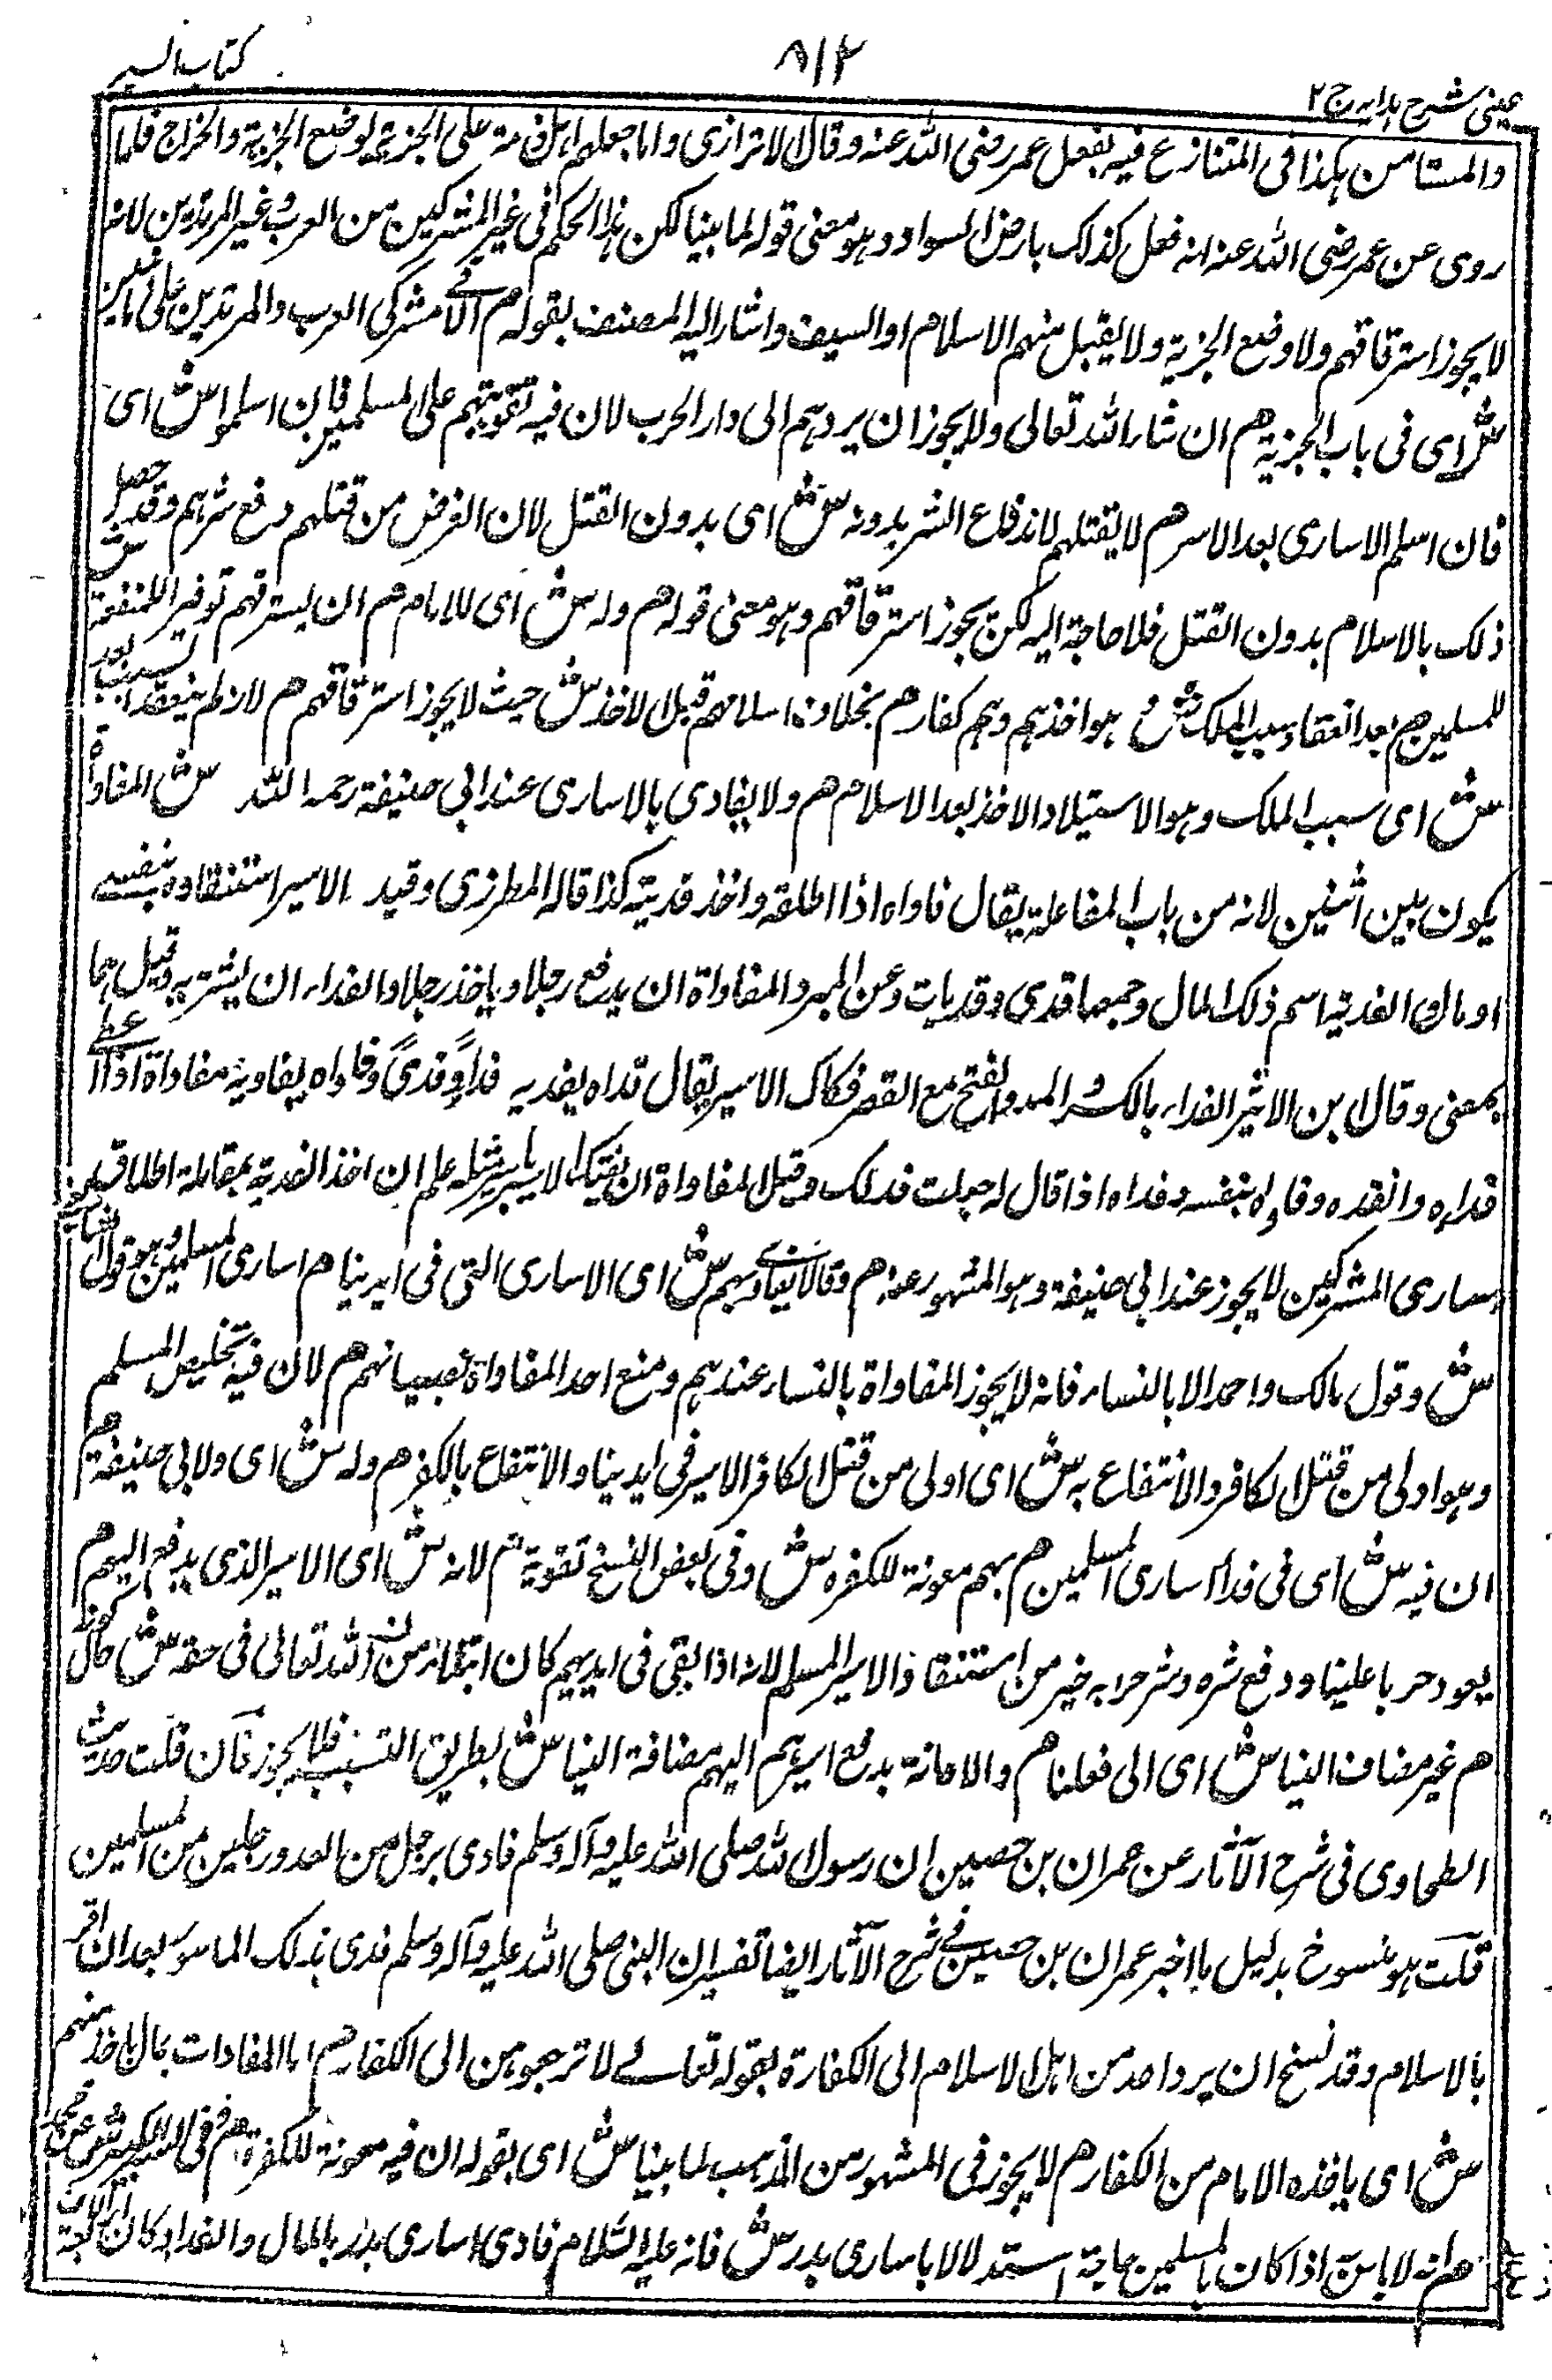 كتاب السير
٨١٢
عينى شرح هدايه ج ٢
والمستامن هكذا فى المتنازع فيه بفعل عمر رضى الله عنه وقال الاترازى وانما جعلهم اهل ذمة على الجزية بوضع الجزية والخراج فلما
روى عن عمر رضى الله عنه انه فعل كذلك بارض السواد وهو معنى قوله لما بينا لكن هذا الحكم فى غير المشركين من العرب وغير المرتدين لانه
لا يجوز استرقاقهم ولا وضع الجزية ولا يقبل منهم الا الاسلام او السيف واشار اليه المصنف بقوله م الا فى مشركى العرب والمرتدين على ما نبين
ش اى فى باب الجزية م ان شاء الله تعالى ولا يجوز ان يردهم الى دار الحرب لان فيه تقويتهم على المسلمين فان اسلموا ش اى
فان اسلم الاسارى بعد الاسر م لا يقتلهم لاندفاع الشر بدونه ش اى بدون القتل لان الغرض من قتلهم دفع شرهم وقد حصل
ذلك بالاسلام بدون القتل فلا حاجة اليه لكن يجوز استرقاقهم وهو معنى قوله م وله ش اى للامام م ان يسترقهم توفيرا للمنفعة
للمسلمين م بعد انعقاد سبب الملك ش وهو اخذهم وهم كفار م بخلاف اسلامهم قبل الاخذ ش حيث لا يجوز استرقاقهم م لانه لم ينعقد السبب بعد
ش اى سبب الملك وهو الاستيلاء والاخذ بعد الاسلام م ولا يفادى بالاسارى عند ابى حنيفة رحمه الله ش المفاداة
يكون بين اثنين لانه من باب المفاعلة يقال فاداه اذا اطلقه واخذ فديته كذا قاله المطرزى وقيد الاسير استنقاذه بنفسى
او مال والفدية اسم ذلك المال وجمعها فدى وفديات وعن المبرد المفاداة ان يدفع رجلا وياخذ رجلا والفداء ان يشتريه وقيل هما
بمعنى وقال ابن الاثير الفداء بالكسر والمد والفتح مع القصر فكاك الاسير يقال فداه يفديه فداءً وفدىً وفاداه يفاديه مفاداة اذا اعطى
فداءه وانقذه وفداه بنفسه وفداه اذا قال له جعلت فداك وقيل المفاداة ان يفتك الاسير باسير مثله علم ان اخذ الفدية بمقابلة اطلاق
اسارى المشركين لا يجوز عند ابى حنيفة وهو المشهور عنه م وقالا يفادى بهم ش اى الاسارى التى فى ايدينا م اسارى المسلمين وهو قول الشافعى
ش وقول مالك واحمد الا بالنساء فانه لا يجوز المفاداة بالنساء عندهم ومنع احمد المفاداة بصبيانهم م لان فيه تخليص المسلم
وهو اولى من قتل الكافر والانتفاع به ش اى اولى من قتل الكافر الاسير فى ايدينا والانتفاع بالكفر م وله ش اى ولابى حنيفة م
ان فيه ش اى فى فداء اسارى المسلمين م بهم معونة للكفرة ش وفى بعض النسخ تقوية م لانه ش اى الاسير الذى يدفع اليهم م
يعود حربا علينا ودفع شره وشر حرابه خير من استنقاذ الاسير المسلم لانه اذا بقى فى ايديهم كان ابتلاء من الله تعالى فى حقه ش حال كونه
م غير مضاف الينا ش اى الى فعلنا م والاعانة بدفع اسيرهم اليهم مضافة الينا ش بطريق التسبب فلا يجوز فان قلت حديث
الطحاوى فى شرح الآثار عن عمران بن حصين ان رسول الله صلى الله عليه وآله وسلم فادى برجل من العدو رجلين من المسلمين
قلت هو منسوخ بدليل ما اخبر عمران بن حصين فى شرح الآثار ايضا تفسير ان النبى صلى الله عليه وآله وسلم فدى بذلك الماسور بعد ان اقر
بالاسلام وقد نسخ ان يرد احد من اهل الاسلام الى الكفارة بقوله تعالى لا ترجعوهن الى الكفار م اما المفادات بمال ياخذ منهم
ش اى ياخذه الامام من الكفار م لا يجوز فى المشهور من المذهب لما بينا ش اى بقوله ان فيه معونة للكفرة م وفى السير الكبير ش عن محمد
م انه لا باس اذا كان بالمسلمين حاجة استدلالا باسارى بدر ش فانه عليه السلام فادى اسارى بدر بالمال والفداء كان